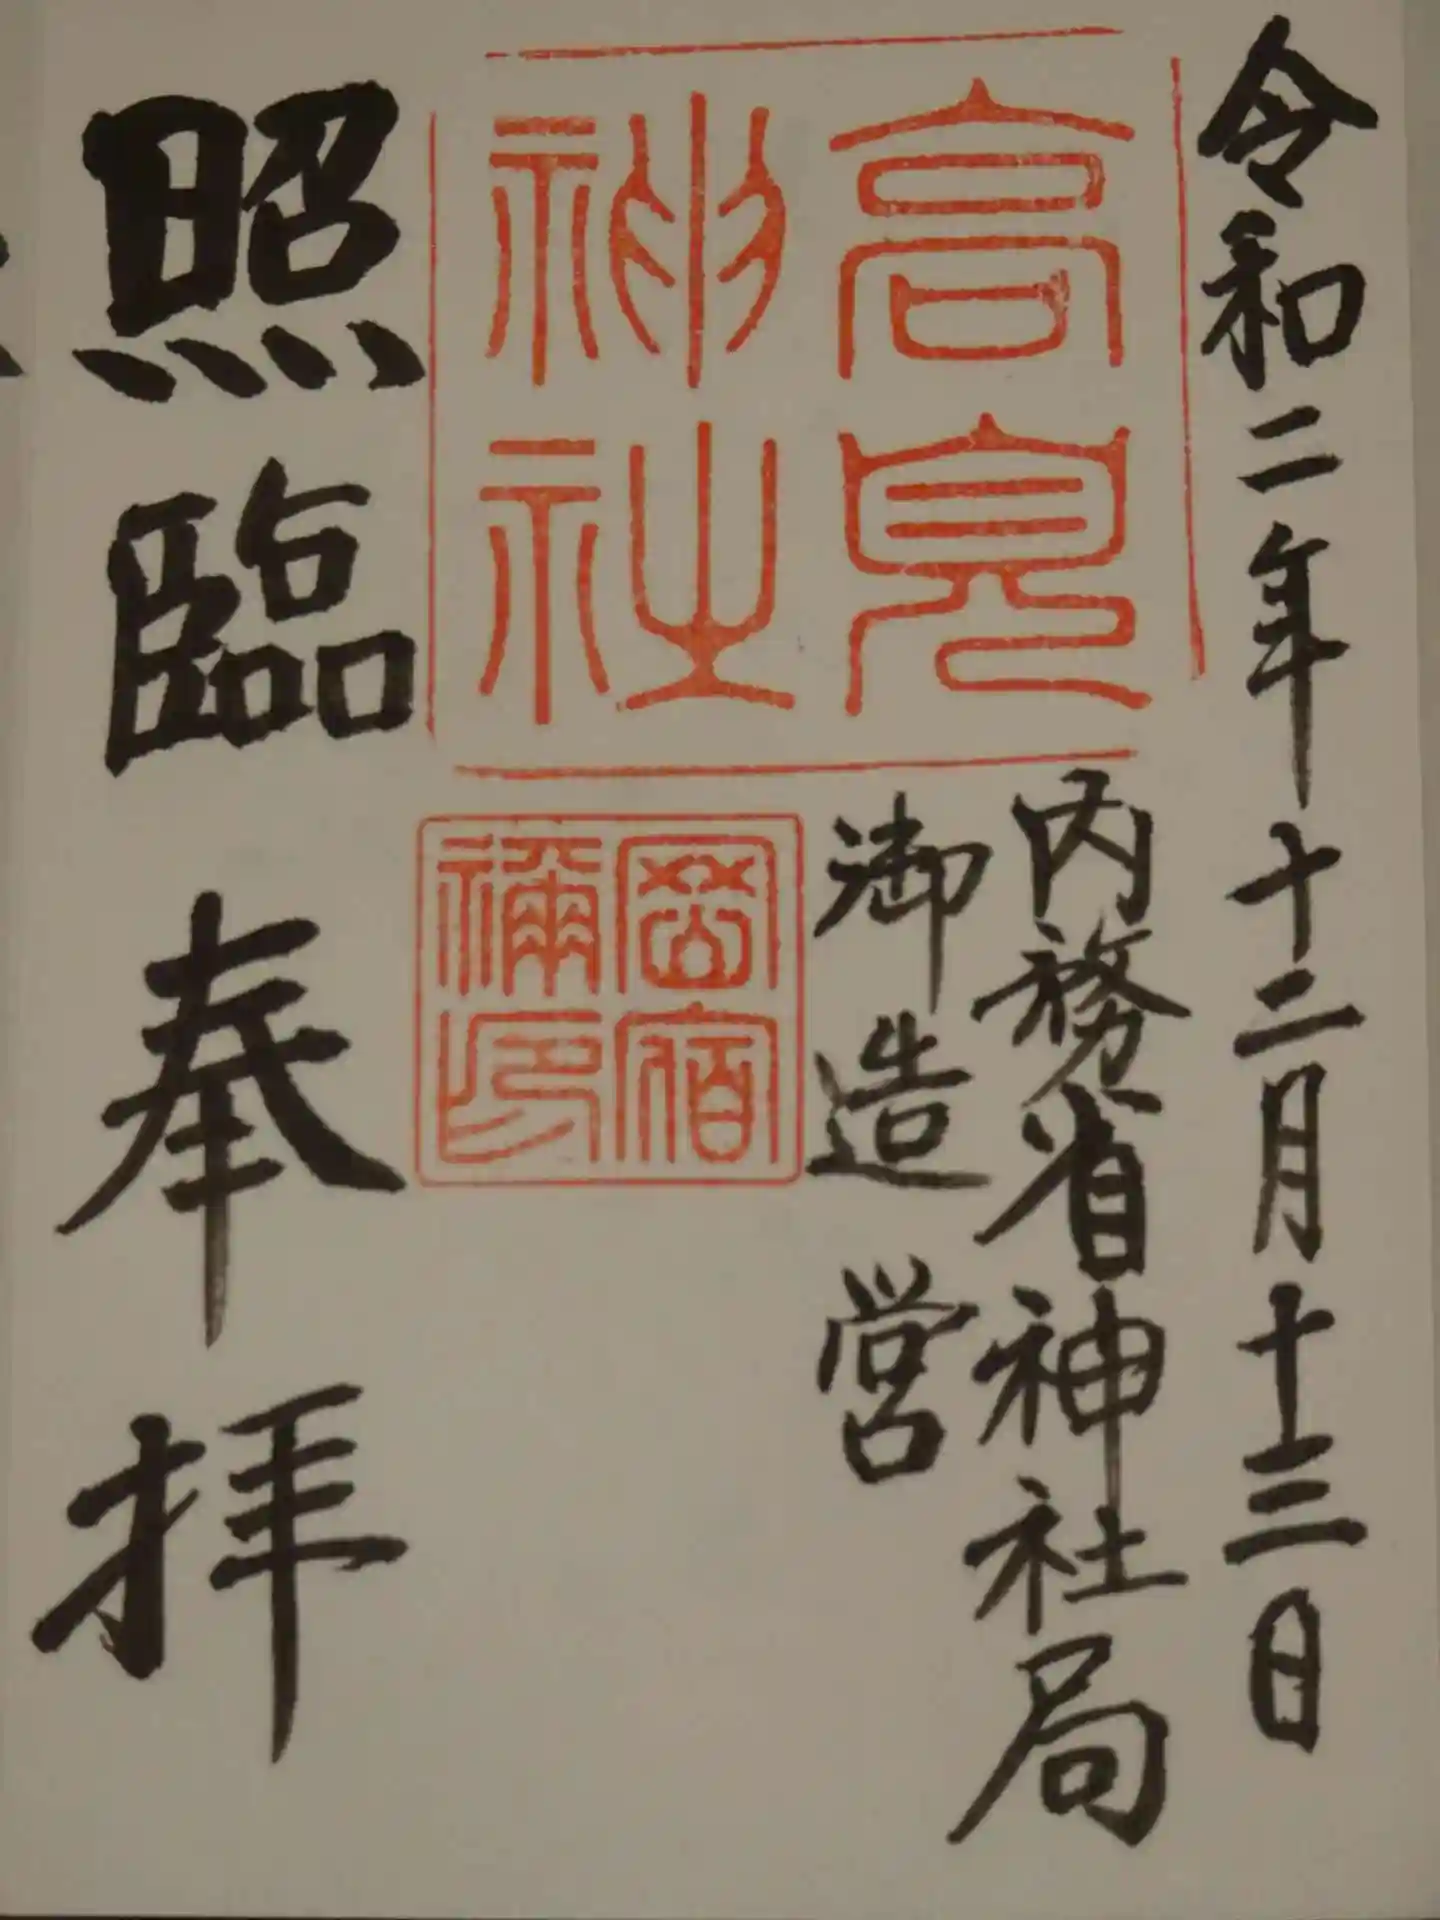 令和二年十二月十三日
内務省神社局
御造営
高見
神社
照臨奉拝